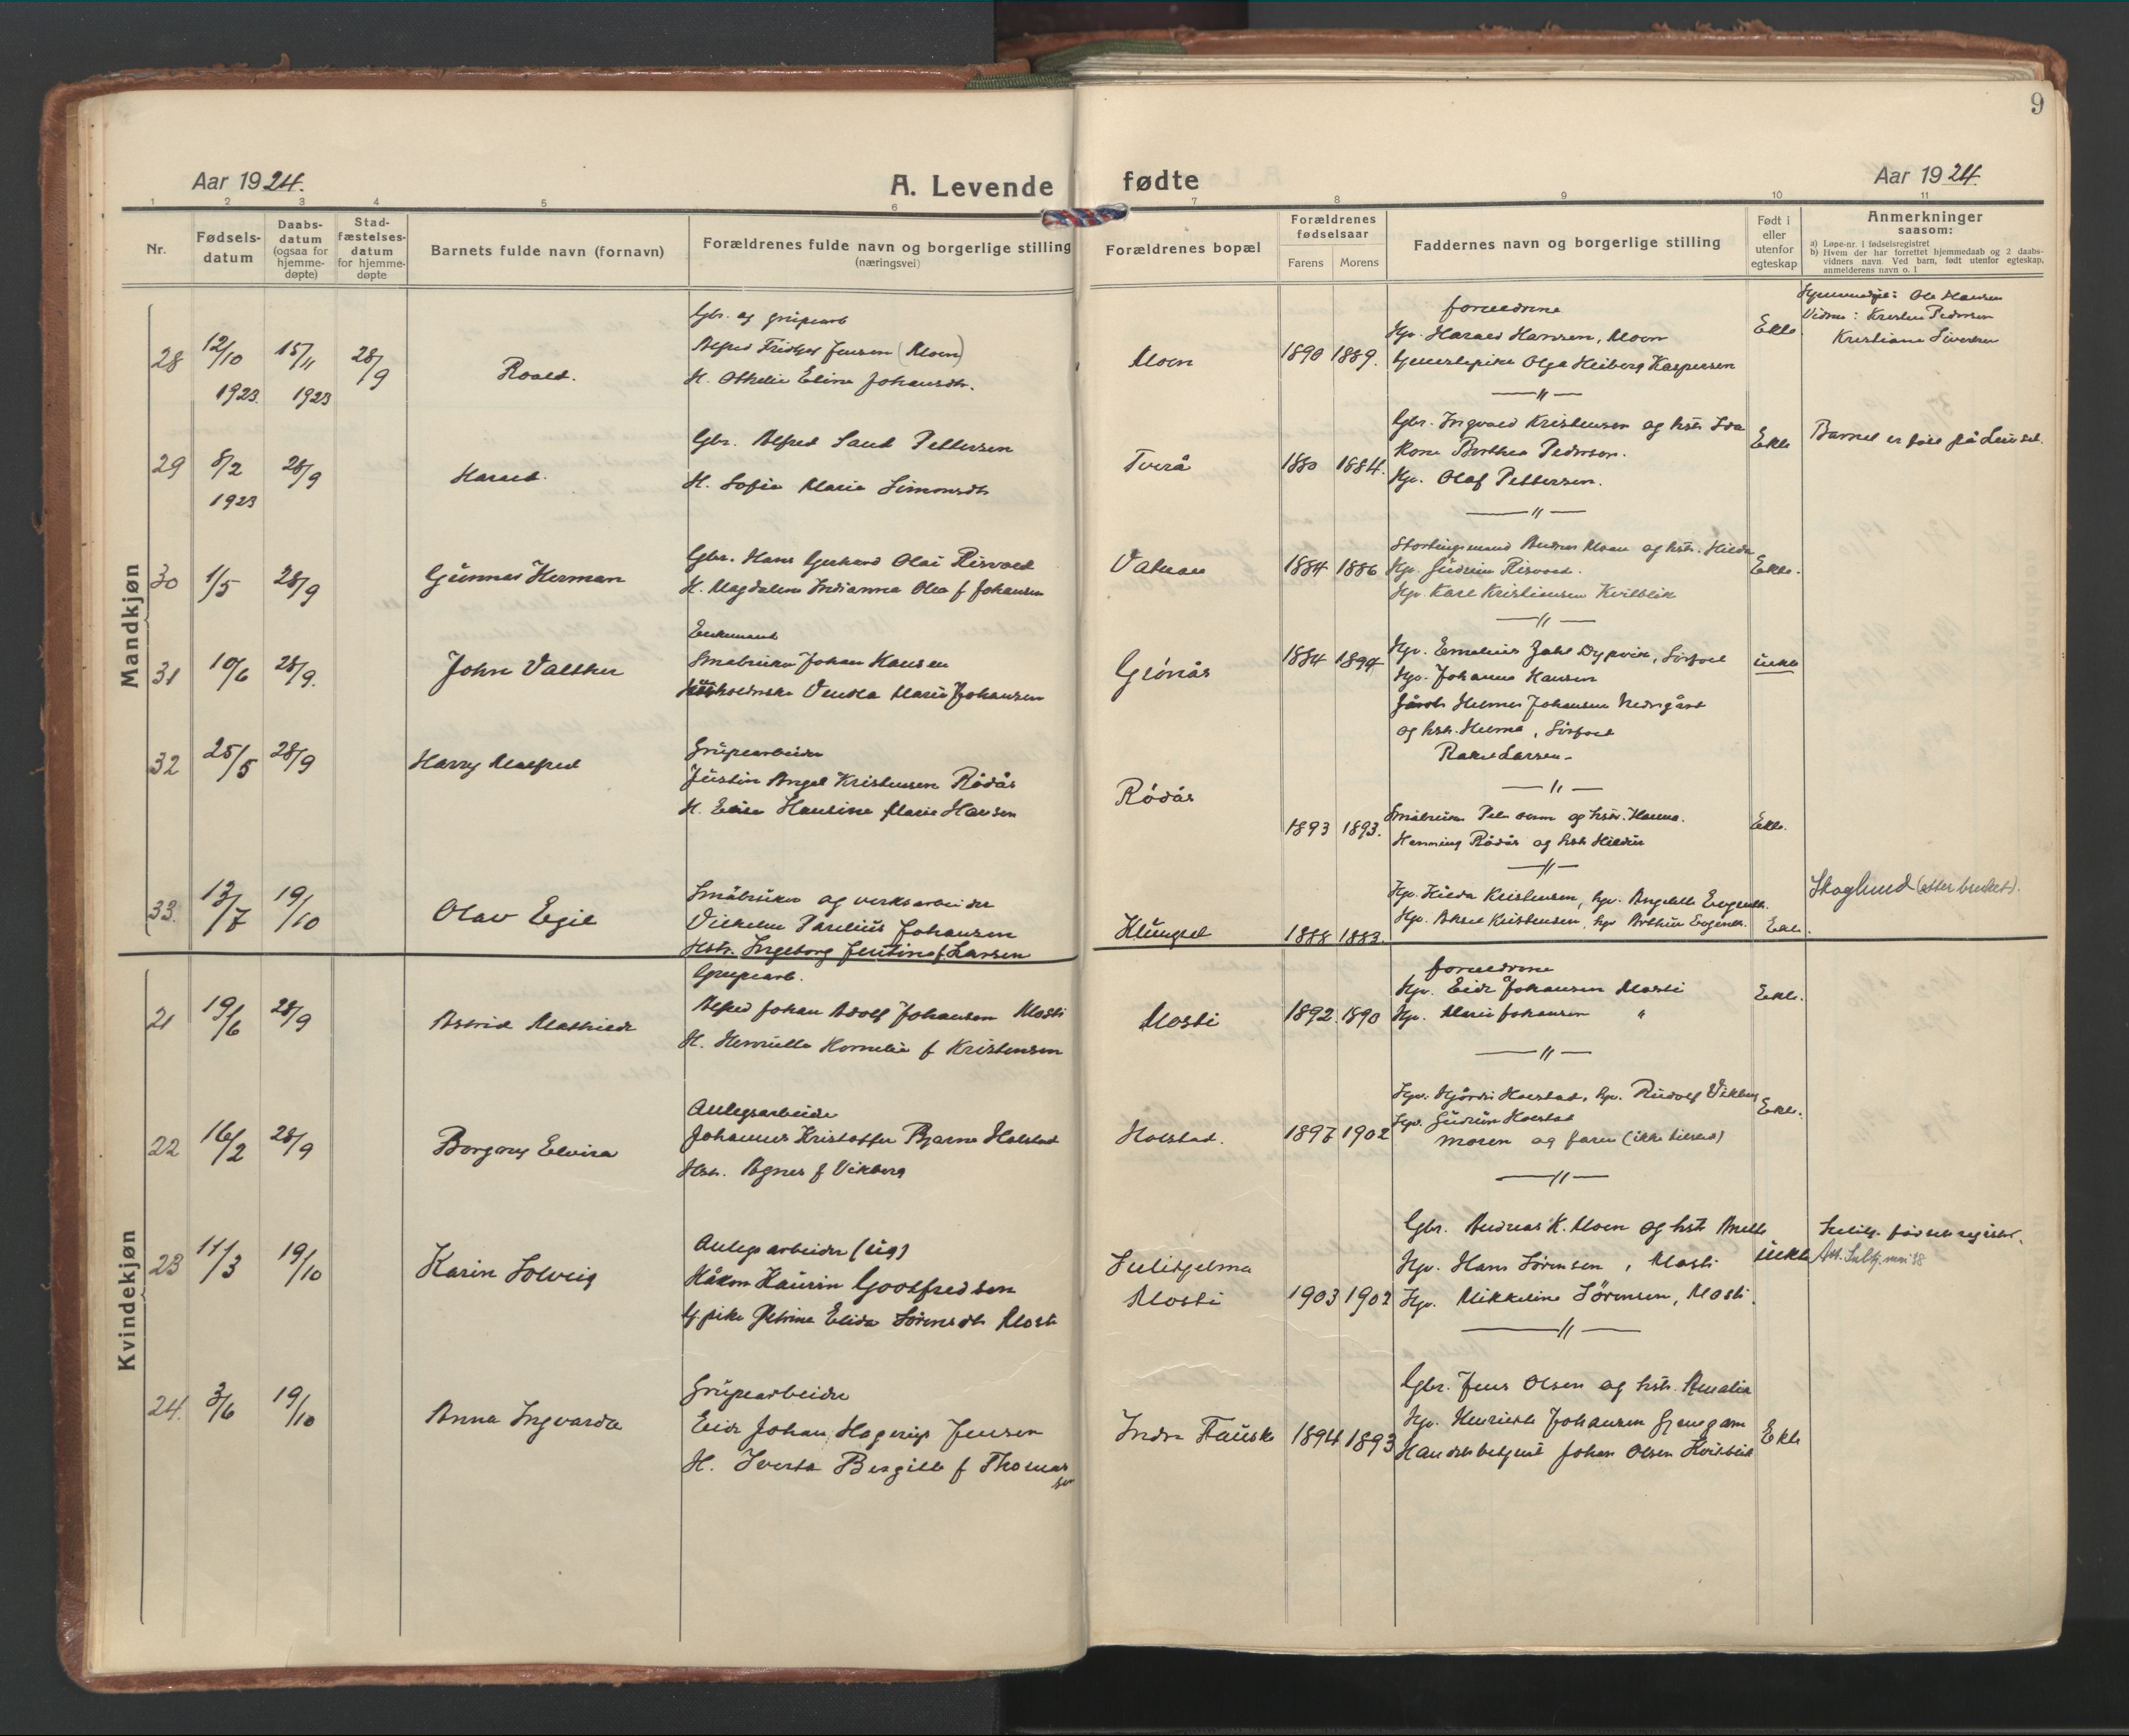 9
Aar 1924.
A. Levende fødte
Aar 1924
1 2 3 4 5 6 7 8 9 10 11
Nr.
Fødsels-
datum
Daabs-
datum
(ogsaa for
hjemme-
døpte)
Stad-
fæstelses-
datum
for hjemme-
døpte
Barnets fulde navn (fornavn)
Forældrenes fulde navn og borgerlige stilling
(næringsvei)
Forældrenes bopæl
Forældrenes
fødselsaar
Farens Morens
Faddernes navn og borgerlige stilling
Født i
eller
utenfor
egteskap
Anmerkninger
saasom:
a) Løpe-nr. i fødselsregistret
b) Hvem der har forrettet hjemmedaab og 2 daabs-
vidners navn. Ved barn, født utenfor egteskap,
anmelderens navn o. l
Mandkjøn
28 12/10 1923. 15/11 1923 28/9
Roald.
Gbr. og grubearb
Alfred Fridtjof Jensen (Moen)
H. Othelie Eline Johansdtr.
Moen
1890 1889.
foreldrene
Hpv. Harald Hansen, Moen
Olga Heiberg Kaspersen
Ekte.
Hjemmedøpt: Ole Hansen
Vidner: Kristen Pedersen
Kristiane Sivertsen
29 8/2 1923 28/9
Harald.
Gbr. Alfred Saut Pettersen
H. Sofie Marie Simonsdtr
Tverå
1880 1884.
Gbr. Ingvald Kristensen og hstr Ida
Kone Berthea Pedersen.
Hp. Olaf Pettersen.
Ekte
Barnet er født på
30 1/5 28/9
Gunnar Herman
Gbr. Hans Gerhard Olai Risvold
H. Magdalene Indianna Olea f Johansen
Valnes
1884 1886
Stortingsmand Andres Moen og hstr. Hilda
Hp. Gudrun Risvold.
Hp. Karl Kristiansen Kvitblik
Ekte.
31 10/6 28/9.
John Valther
Enkemand
Småbruker Johan Hansen
Husholderske Vensla Marie Johansen
Grønås
1884 1894
Hp. Emelius Zahl Dypvik, Sørfold
Hp. Johanne Hansen
Gårdb Helmer Johansen Nedrgård
og hstr. Helma, Sørfold
Rakel Larsen.
uekte
32 25/5 28/9
Harry Malfred
Grubearbeider
Justin Angel Kristensen Rødås
H. Elise Hansine Marie Hansen
Rødås
1893 1893.
Småbruker Peder og hstr. Hanna.
Henning Rødås og hstr Hildur
Ekte.
33. 13/7 19/10
Olav Egil
Småbruker og verksarbeider
Vilhelm Parelius Johansen
Hstr. Ingeborg Jentine f. Larsen
Klungset
1888 1883.
Hp. Hilda Kristensen, hp. Angelille
Hp. Aksel Kristensen, hp Arthur
Ekte.
Skoglund (etter bruket).
Kvindekjøn
21 19/6 28/9
Astrid Mathilde
Grubearb.
Alfred Johan Adolf Johansen Mosti
H. Henriette Kornelie f Kristensen
Mosti
1892. 1890
foreldrene
Hp. Eide Johansen Mosti
Hp. Marie Johansen "
Ekte.
22 16/2 28/9
Borgny Elvira
Anlegsarbeider
Johannes Kristoffer Bjarne Holstad
Hstr. Agnes f Vikberg
Holstad.
1897 1902
Hp. Hjørdis Holstad, hp. Rudolf Vikberg
Hp. Gudrun Holstad
moren og faren (ikke tilsted)
Ekte.
23 11/3 19/10
Karin Solveig
Anlegsarbeider (ug)
Håkon Kaurin Godtfredsen
Tj. pike Petrine Elida Sørensdtr Mosti
Sulitjelma
Mosti
1903 1902
Gbr. Andreas K. Moen og hstr Anette
Hp. Hans Sørensen, Mosti
Hp. Mikkeline Sørensen, Mosti.
uekte
Sulitj. fødselsregister.
Att. Sulitj. mai 38
24. 3/6 19/10
Anna Ingvarda
Grubearbeider
Eide Johan Hagerup Jensen
H. Iverta Bergitte f Thomassen
Indre Fauske
1894 1893
Gbr. Jens Olsen og hstr. Amalia
Hp. Henriette Johansen Gjengam
Handelsbetjent Johan Olsen Kvitblik
Ekte